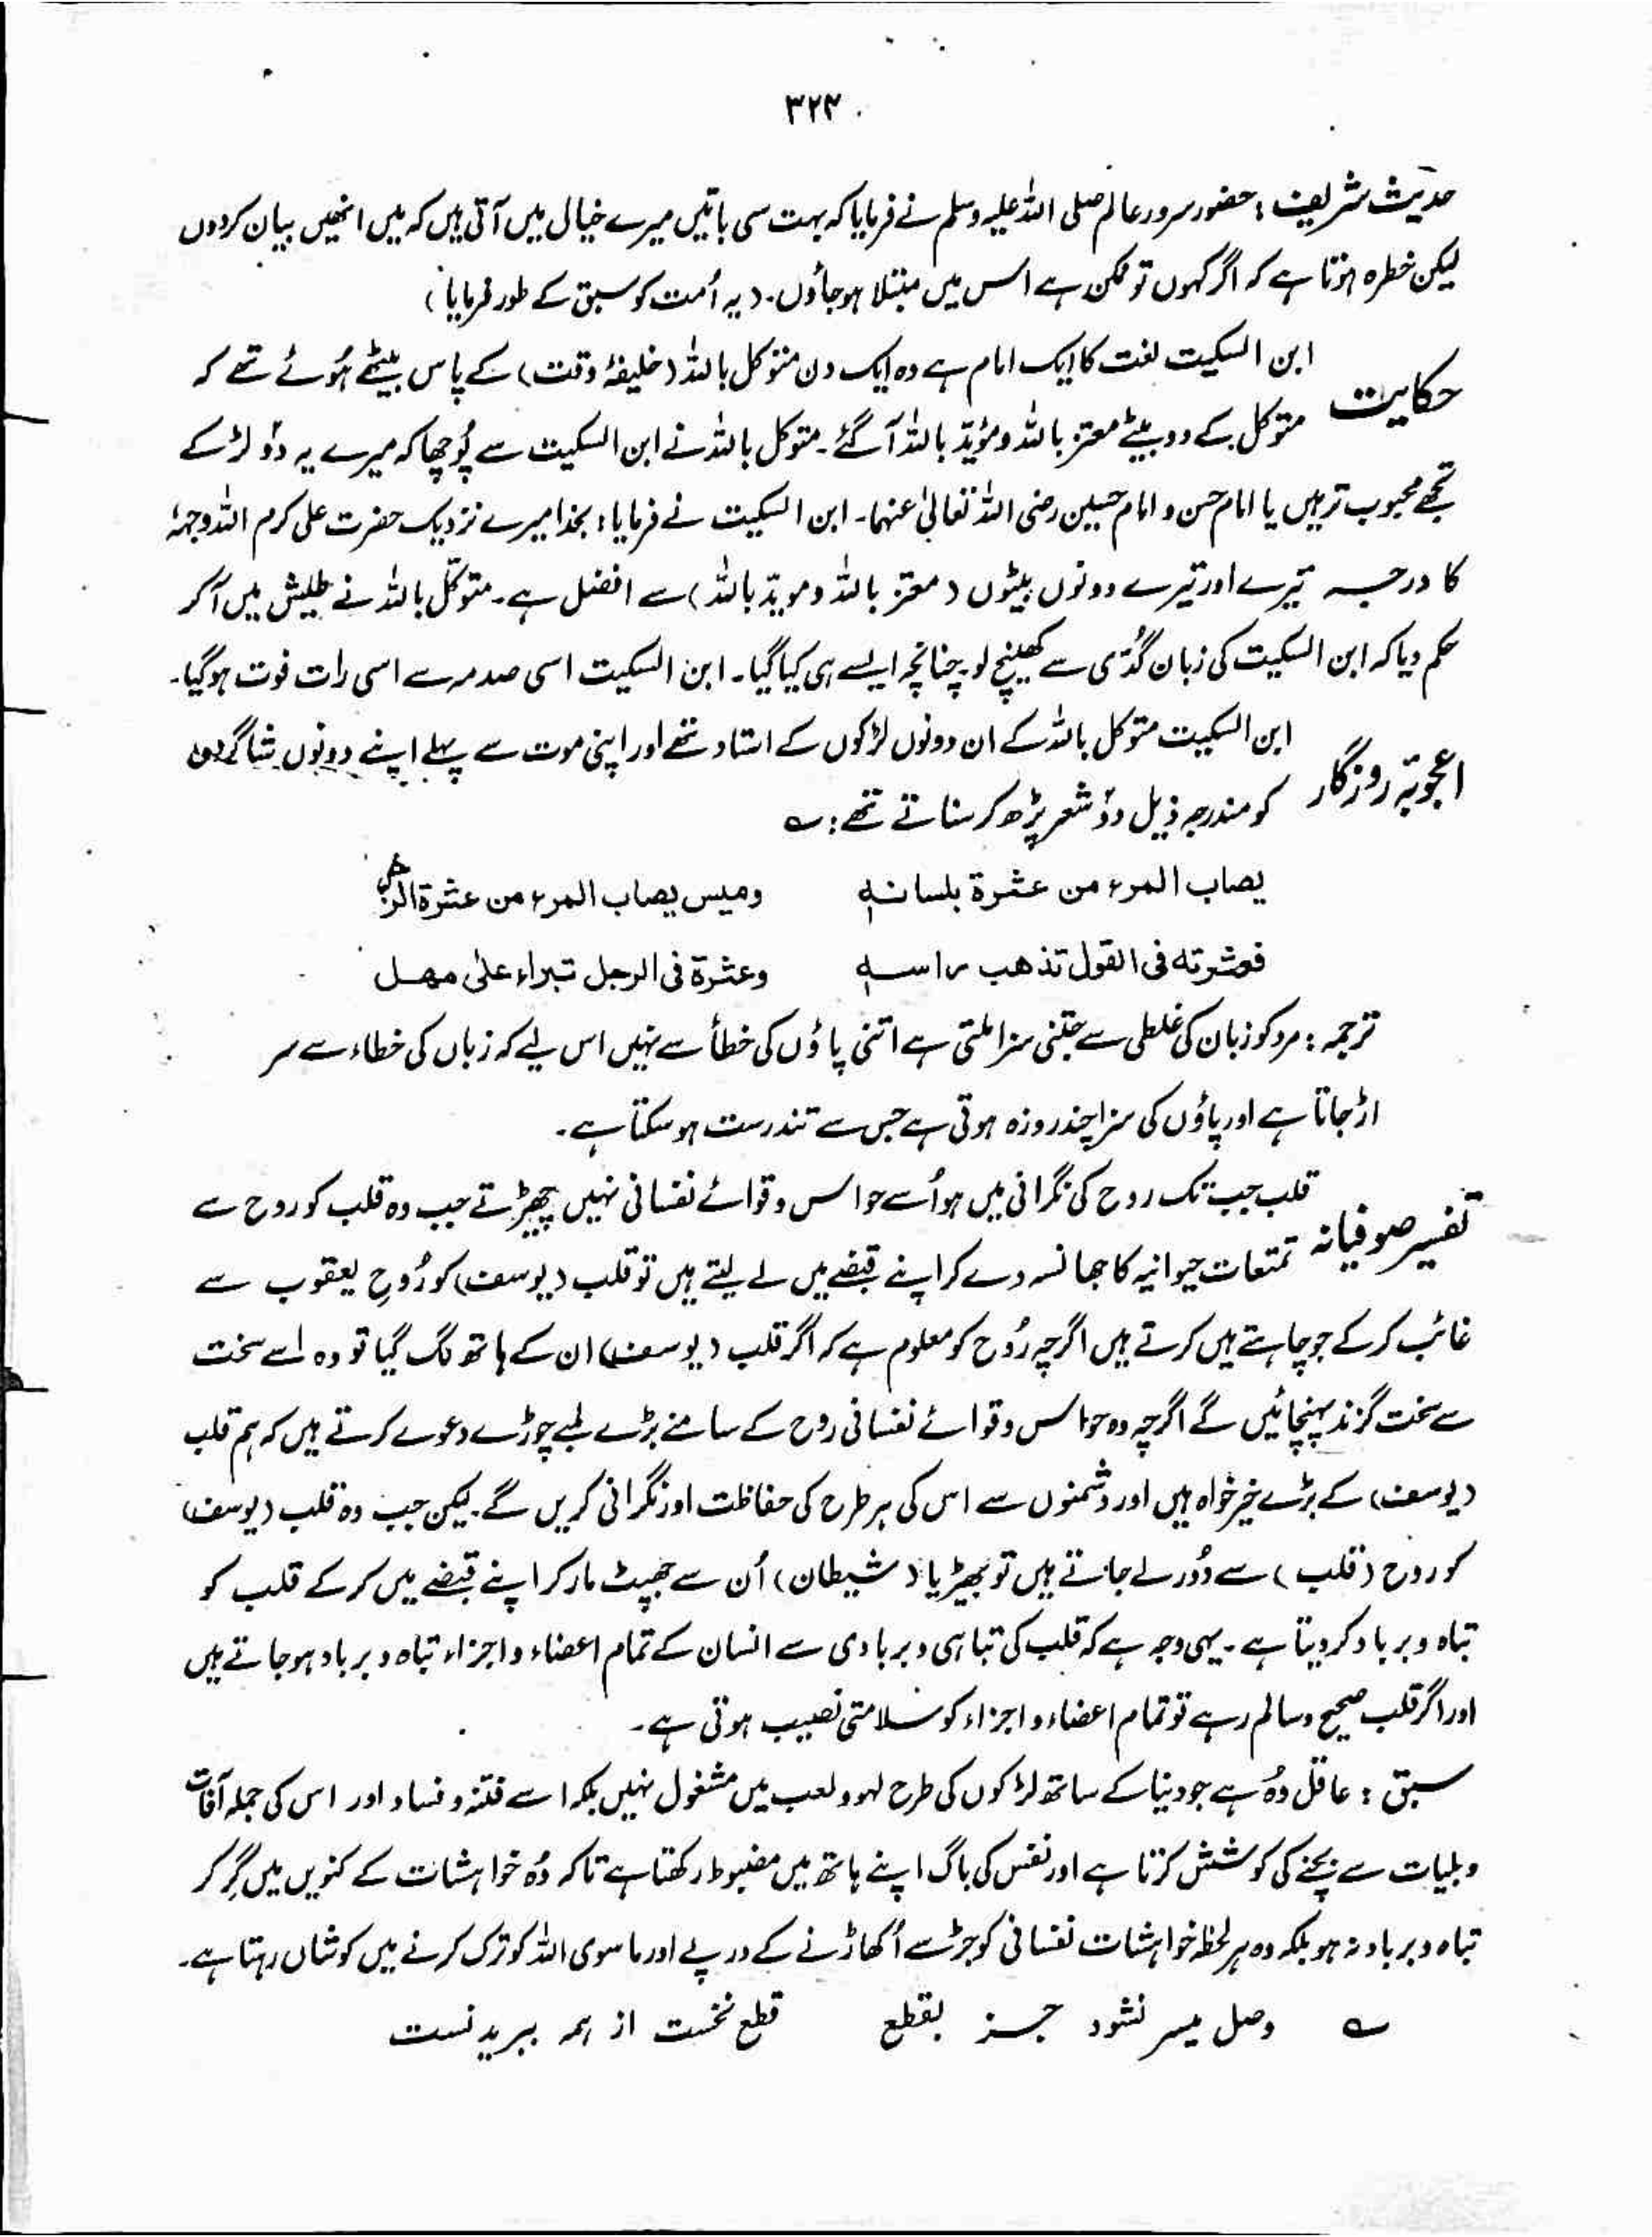 ۳۲۳
حدیث شریف : حضور سرور عالم صلی اللہ علیہ وسلم نے فرمایا کہ بہت سی باتیں میرے خیال میں آتی ہیں کہ میں انھیں بیان کردوں
لیکن خطرہ ہوتا ہے کہ اگر کہوں تو ممکن ہے اس میں مبتلا ہوجاؤں۔ (یہ اُمت کو سبق کے طور فرمایا)
حکایت ابن السکیت لغت کا ایک امام ہے وہ ایک دن متوکل باللہ (خلیفۂ وقت) کے پاس بیٹھے ہُوئے تھے کہ
متوکل کے دو بیٹے معتز باللہ و مؤیّد باللہ آگئے۔ متوکل باللہ نے ابن السکیت سے پُوچھا کہ میرے یہ دوؔ لڑکے
تجھے محبوب تر ہیں یا امام حسن و امام حسین رضی اللہ تعالیٰ عنہما۔ ابن السکیت نے فرمایا : بخدا میرے نزدیک حضرت علی کرم اللہ وجہہٗ
کا درجہ تیرے اور تیرے دونوں بیٹوں (معتز باللہ و مویدّ باللہ) سے افضل ہے۔ متوکّل باللہ نے طیش میں آکر
حکم دیا کہ ابن السکیت کی زبان گُدّی سے کھینچ لو۔ چنانچہ ایسے ہی کیا گیا۔ ابن السکیت اسی صدمہ سے اسی رات فوت ہوگیا۔
اعجوبۂ روزگار ابن السکیت متوکل باللہ کے ان دونوں لڑکوں کے استاد تھے اور اپنی موت سے پہلے اپنے دونوں شاگردوں
کو مندرجہ ذیل دوؔ شعر پڑھ کر سناتے تھے : ؎
یصاب المرء من عثرة بلسانہٖ ولیس یصاب المرء من عثرة الرجل
فعثرته فی القول تذھب راسہٖ وعثرة فی الرجل تبراء علیٰ مھل
ترجمہ : مرد کو زبان کی غلطی سے جتنی سزا ملتی ہے اتنی پاؤں کی خطأ سے نہیں اس لیے کہ زباں کی خطاء سے سر
اڑ جاتا ہے اور پاؤں کی سزا چند روزہ ہوتی ہے جس سے تندرست ہو سکتا ہے۔
تفسیر صوفیانہ قلب جب تک روح کی نگرانی میں ہو اُسے حواس و قوائے نفسانی نہیں چھیڑتے جب وہ قلب کو روح سے
تمتعات حیوانیہ کا جھانسہ دے کر اپنے قبضے میں لے لیتے ہیں تو قلب (یوسف) کو رُوحِ یعقوب سے
غائب کرکے جو چاہتے ہیں کرتے ہیں اگرچہ رُوح کو معلوم ہے کہ اگر قلب (یوسف) ان کے ہاتھ لگ گیا تو وہ اسے سخت
سے سخت گزند پہنچائیں گے اگرچہ وہ حواس و قوائے نفسانی روح کے سامنے بڑے لمبے چوڑے دعوے کرتے ہیں کہ ہم قلب
(یوسف) کے بڑے خیر خواہ ہیں اور دشمنوں سے اس کی ہر طرح کی حفاظت اور نگرانی کریں گے۔ لیکن جب وہ قلب (یوسف)
کو روح (قلب) سے دُور لے جاتے ہیں تو بھیڑیا (شیطان) اُن سے جھپٹ مار کر اپنے قبضے میں کرکے قلب کو
تباہ و برباد کردیتا ہے۔ یہی وجہ ہے کہ قلب کی تباہی و بربادی سے انسان کے تمام اعضاء و اجزاء تباہ و برباد ہو جاتے ہیں
اور اگر قلب صحیح و سالم رہے تو تمام اعضاء و اجزاء کو سلامتی نصیب ہوتی ہے۔
سبق : عاقل وُہ ہے جو دنیا کے ساتھ لڑکوں کی طرح لہو و لعب میں مشغول نہیں بلکہ اسے فتنہ و فساد اور اس کی جملہ آفات
و بلیات سے بچنے کی کوشش کرتا ہے اور نفس کی باگ اپنے ہاتھ میں مضبوط رکھتا ہے تاکہ وُہ خواہشات کے کنویں میں گِر کر
تباہ و برباد نہ ہو بلکہ وہ ہر لحظہ خواہشات نفسانی کو جڑ سے اُکھاڑنے کے درپے اور ماسوی اللہ کو ترک کرنے میں کوشاں رہتا ہے۔
؎ وصل میسر نشود جز بقطع قطع نخست از ہمہ ببریدنست